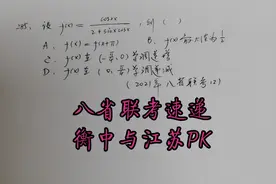 例5、设 f(x) = cos2x / (2+sinxcosx),则( )
A、f(x) = f(x+π)  B、f(x)的最大值为
C、f(x)在(-π/4, 0)单调递增
D、f(x)在(0, π/4)单调递减
(2021年八省联考12)
八省联考速递
衡中与江苏PK